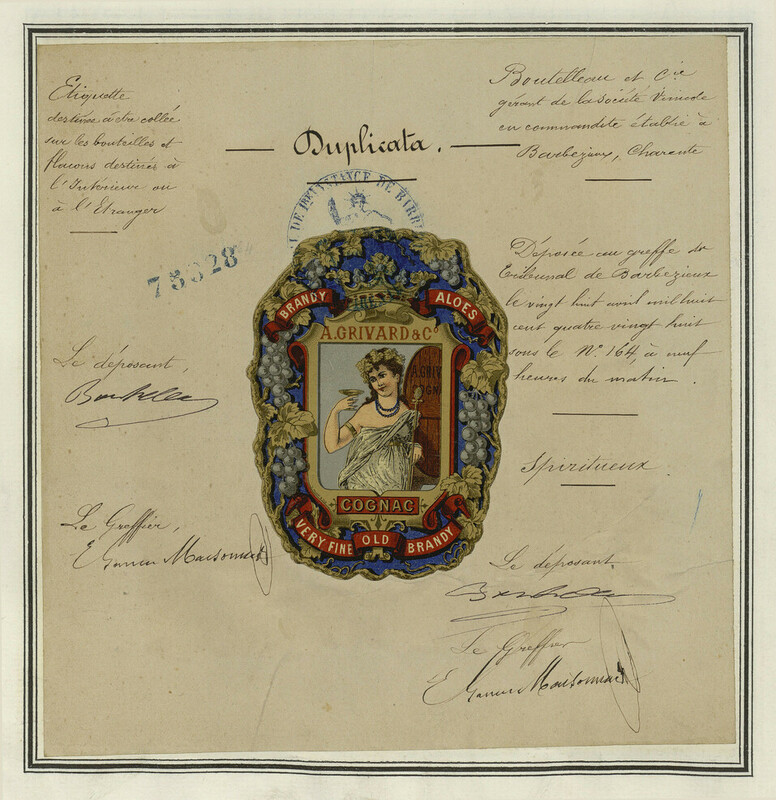 Etiquette
destinée à être collée
sur les bouteilles et
flacons destinés à
l'Intérieur ou
à l'Etranger
Duplicata.
Boutelleau et Cie
gérant de la Société Vinicole
en commandite établie à
Barbezieux, Charente
DE 1RE INSTANCE DE BARBE
75828
Déposée au greffe du
Tribunal de Barbezieux
le vingt huit avril mil huit
cent quatre vingt huit
sous le No. 164, à neuf
heures du matin.
Spiritueux.
BRANDY
ALOES
A.GRIVARD & Co
A.GRIV
COGNA
COGNAC
VERY FINE OLD BRANDY
Le déposant,
Boutelleau
Le Greffier,
Le déposant
Boutelleau
Le Greffier